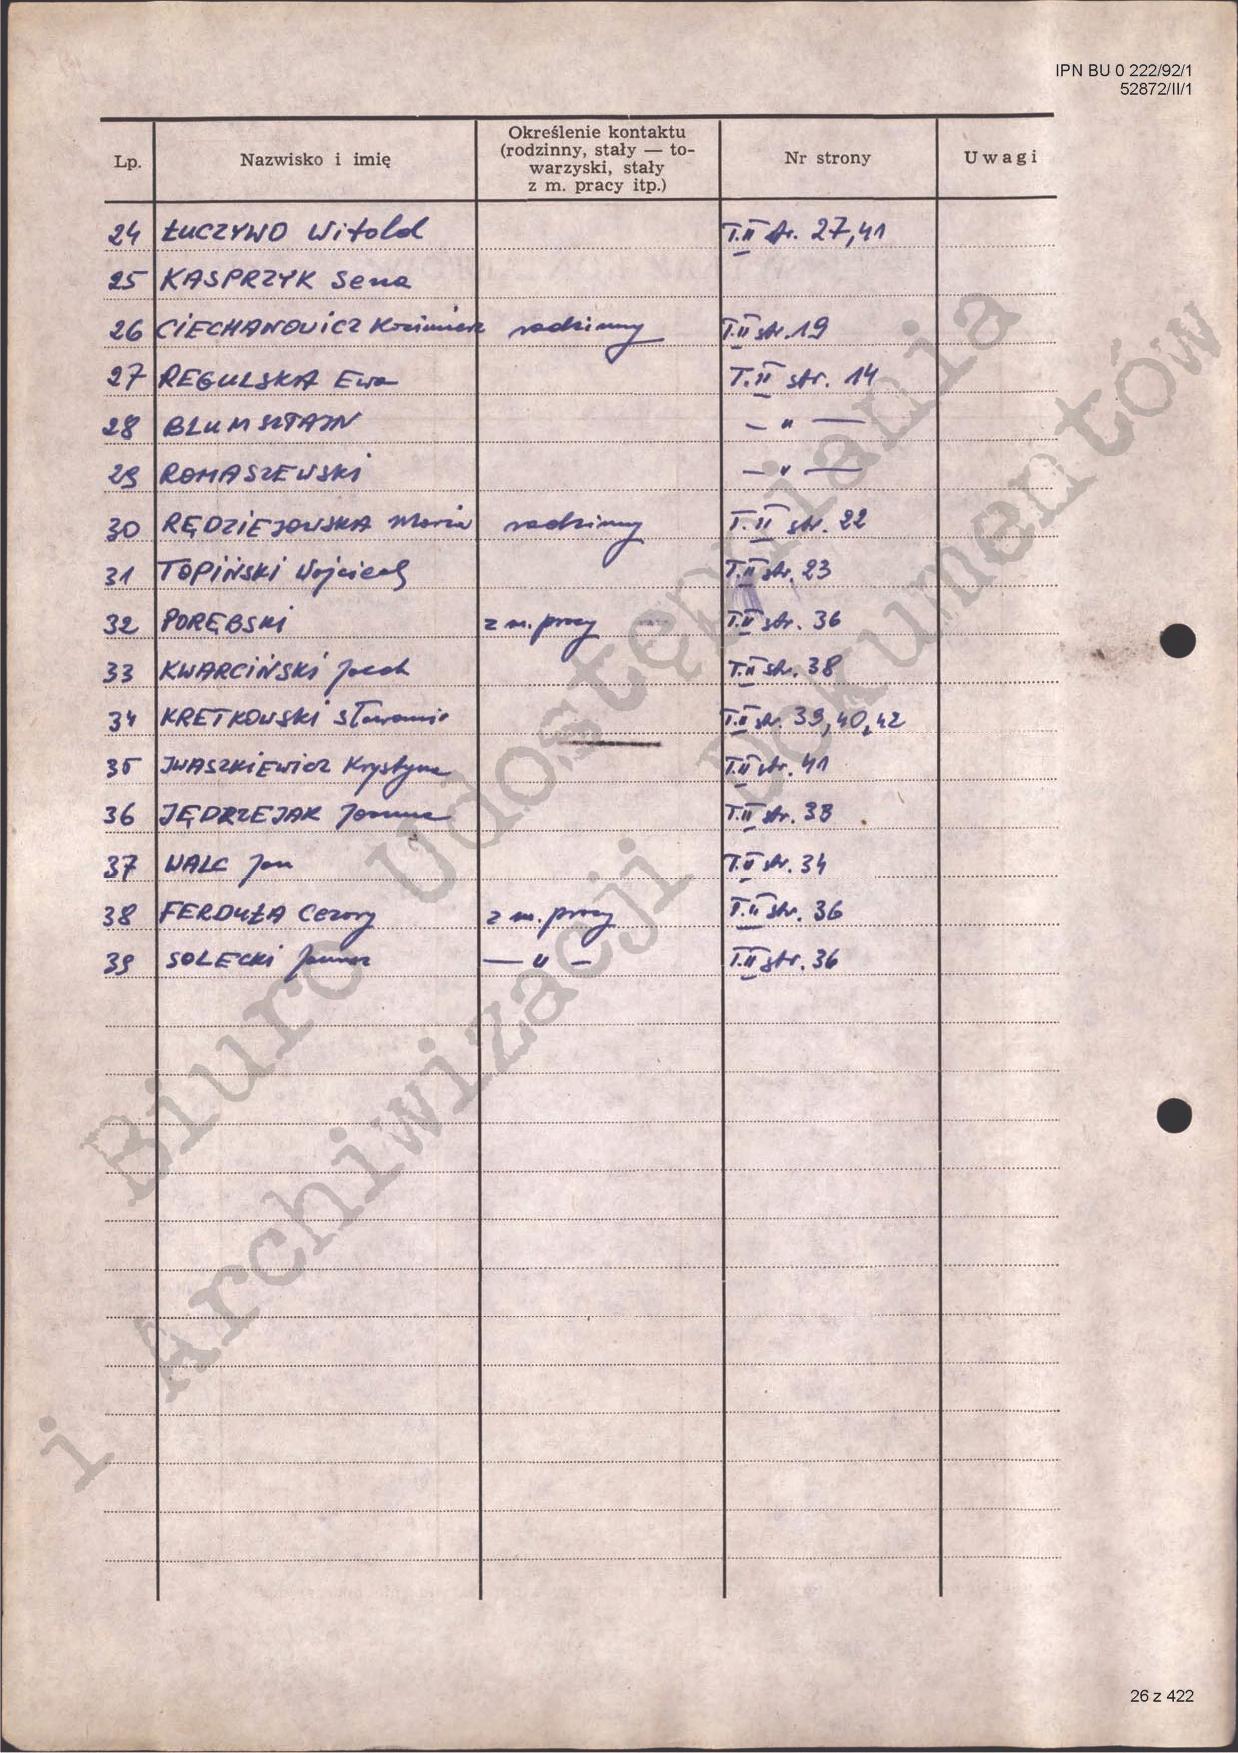 IPN BU 0 222/92/1
52872/II/1
Lp. Nazwisko i imię Określenie kontaktu (rodzinny, stały — to-warzyski, stały z m. pracy itp.) Nr strony Uwagi
24 ŁUCZYWO Witold T.II str. 27,41
25 KASPRZYK Sena
26 CIECHANOWICZ Kazimierz rodzinny T.II str. 19
27 REGULSKA Ewa T.II str. 14
28 BLUMSZTAJN — " —
29 ROMASZEWSKI — " —
30 RĘDZIEJOWSKA Maria rodzinny T.II str. 22
31 TOPIŃSKI Wojciech T.II str. 23
32 PORĘBSKI z m. pracy T.II str. 36
33 KWARCIŃSKI Jacek T.II str. 38
34 KRETKOWSKI Sławomir T.II str. 39,40,42
35 IWASZKIEWICZ Krystyna T.II str. 41
36 JĘDRZEJAK Joanna T.II str. 38
37 WALC Jan T.II str. 34
38 FERDUŁA Cezary z m. pracy T.II str. 36
39 SOLECKI Janusz — " — T.II str. 36
Biuro Udostępniania
i Archiwizacji Dokumentów
26 z 422